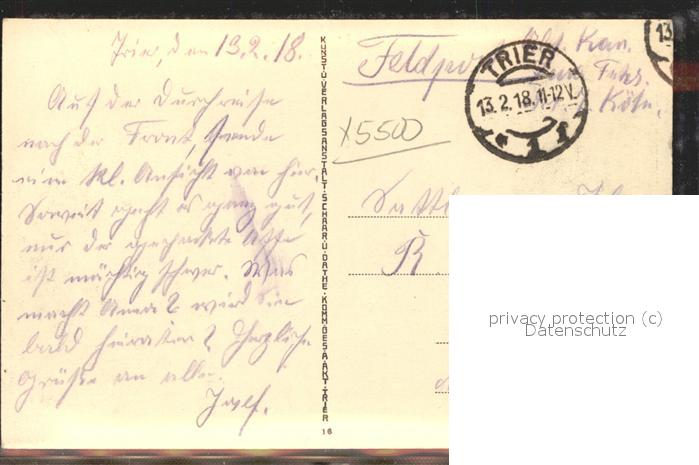 Trier, den 13.2.18.
Auf der Durchreise
nach der Front, sende
eine kl. Ansicht von hier.
Soweit geht es ganz gut,
nur der gepackte Affe
ist mächtig schwer. Was
macht Anna? wird sie
bald heiraten? Herzliche
Grüße an alle.
KUNST U. VERLAGSANSTALT SCHAAR U. DATHE · KOMM. GES. A. AKT. TRIER
16
Feldpost
Kan.
Köln.
TRIER
13.2.18.11-12V.
* 1 f
13
X5500
R.
privacy protection (c)
Datenschutz